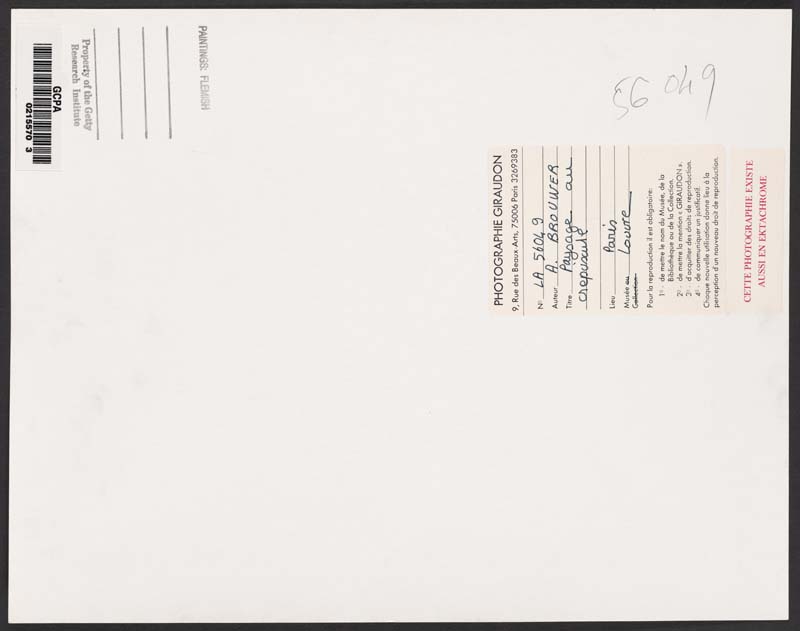 GCPA
0215570 3
Property of the Getty
Research Institute
PAINTINGS: FLEMISH
56 049
PHOTOGRAPHIE GIRAUDON
9, Rue des Beaux-Arts, 75006 Paris 3269383
N° LA 56049
Auteur A. BROUWER
Titre Paysage au
crépuscule
Lieu Paris
Musée ou Louvre
Collection
Pour la reproduction il est obligatoire:
1° - de mettre le nom du Musée, de la
Bibliothèque ou de la Collection.
2° - de mettre la mention « GIRAUDON ».
3° - d'acquitter des droits de reproduction.
4° - de communiquer un justificatif.
Chaque nouvelle utilisation donne lieu à la
perception d'un nouveau droit de reproduction.
CETTE PHOTOGRAPHIE EXISTE
AUSSI EN EKTACHROME